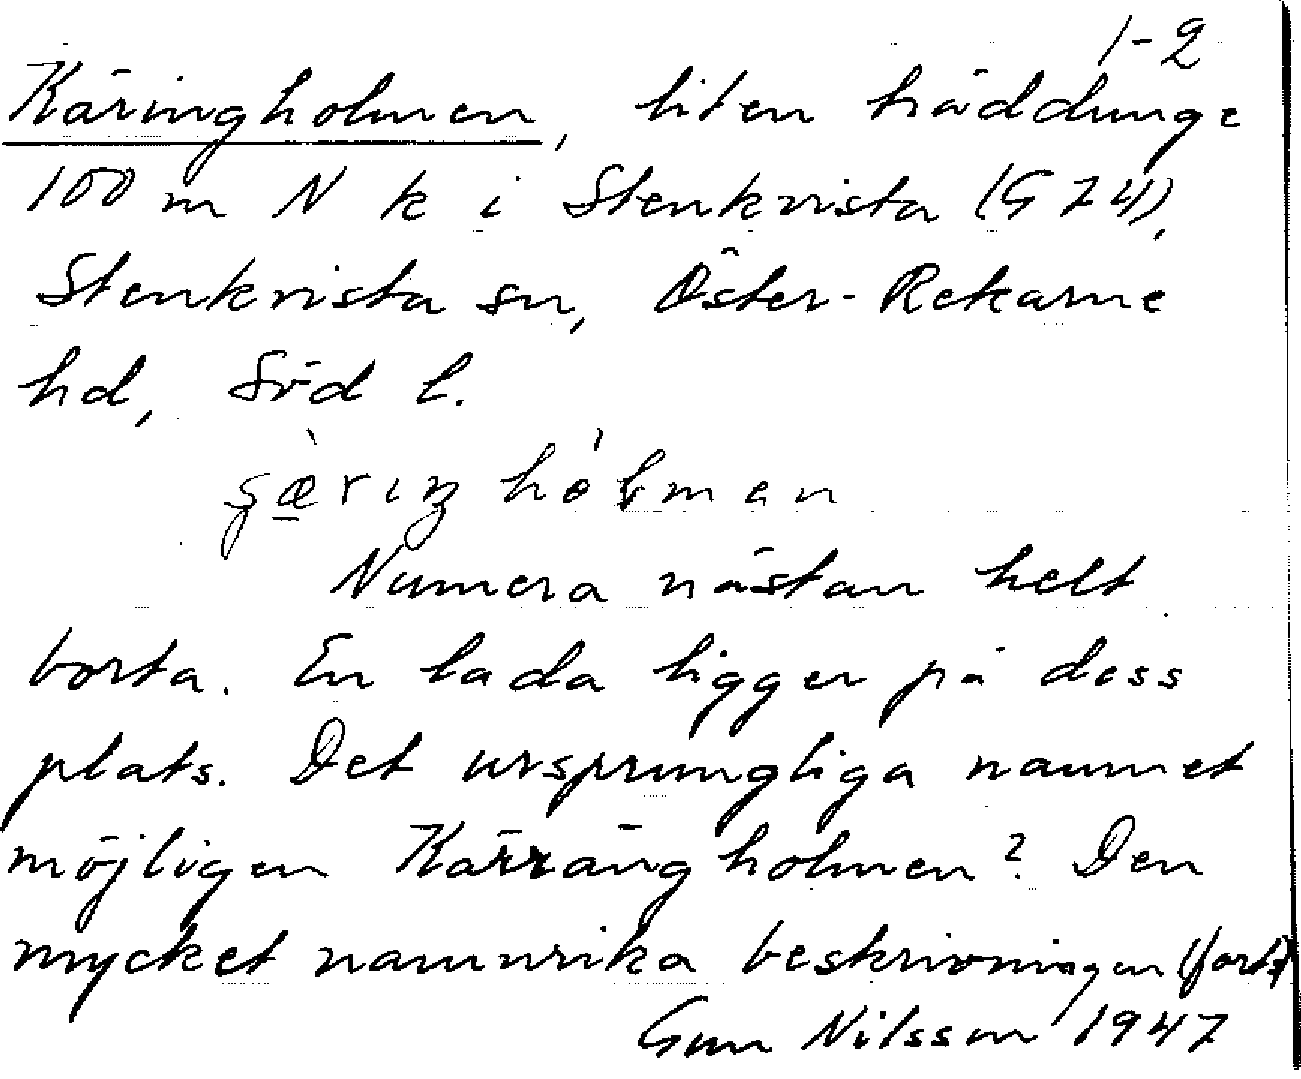 1-2
Käringholmen, liten träddunge
100 m N k i Stenkvista (G 74),
Stenkvista sn, Öster-Rekarne
hd, Söd l.
Numera nästan helt
borta. En lada ligger på dess
plats. Det ursprungliga namnet
möjligen Kärrängholmen? Den
mycket namnrika beskrivningen (forts)
Gun Nilsson 1947